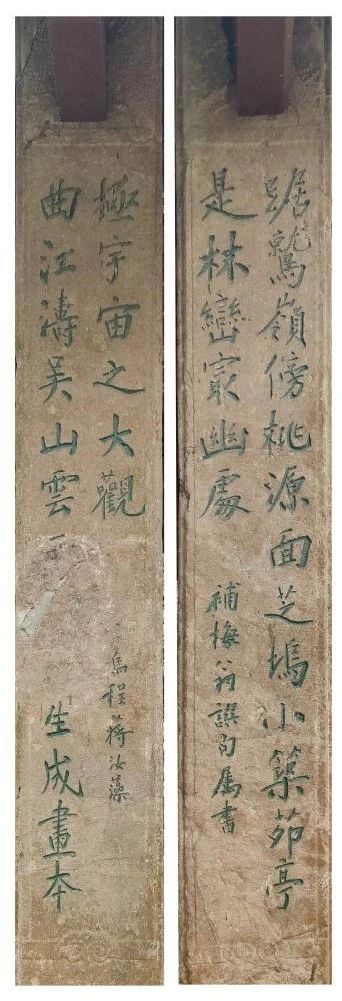 踞鷲嶺傍桃源面芝塢小築茆亭
是林巒㝡幽處
補梅翁譔句屬書
曲江濤吳山雲 生成畫本
極宇宙之大觀
烏程蔣汝藻